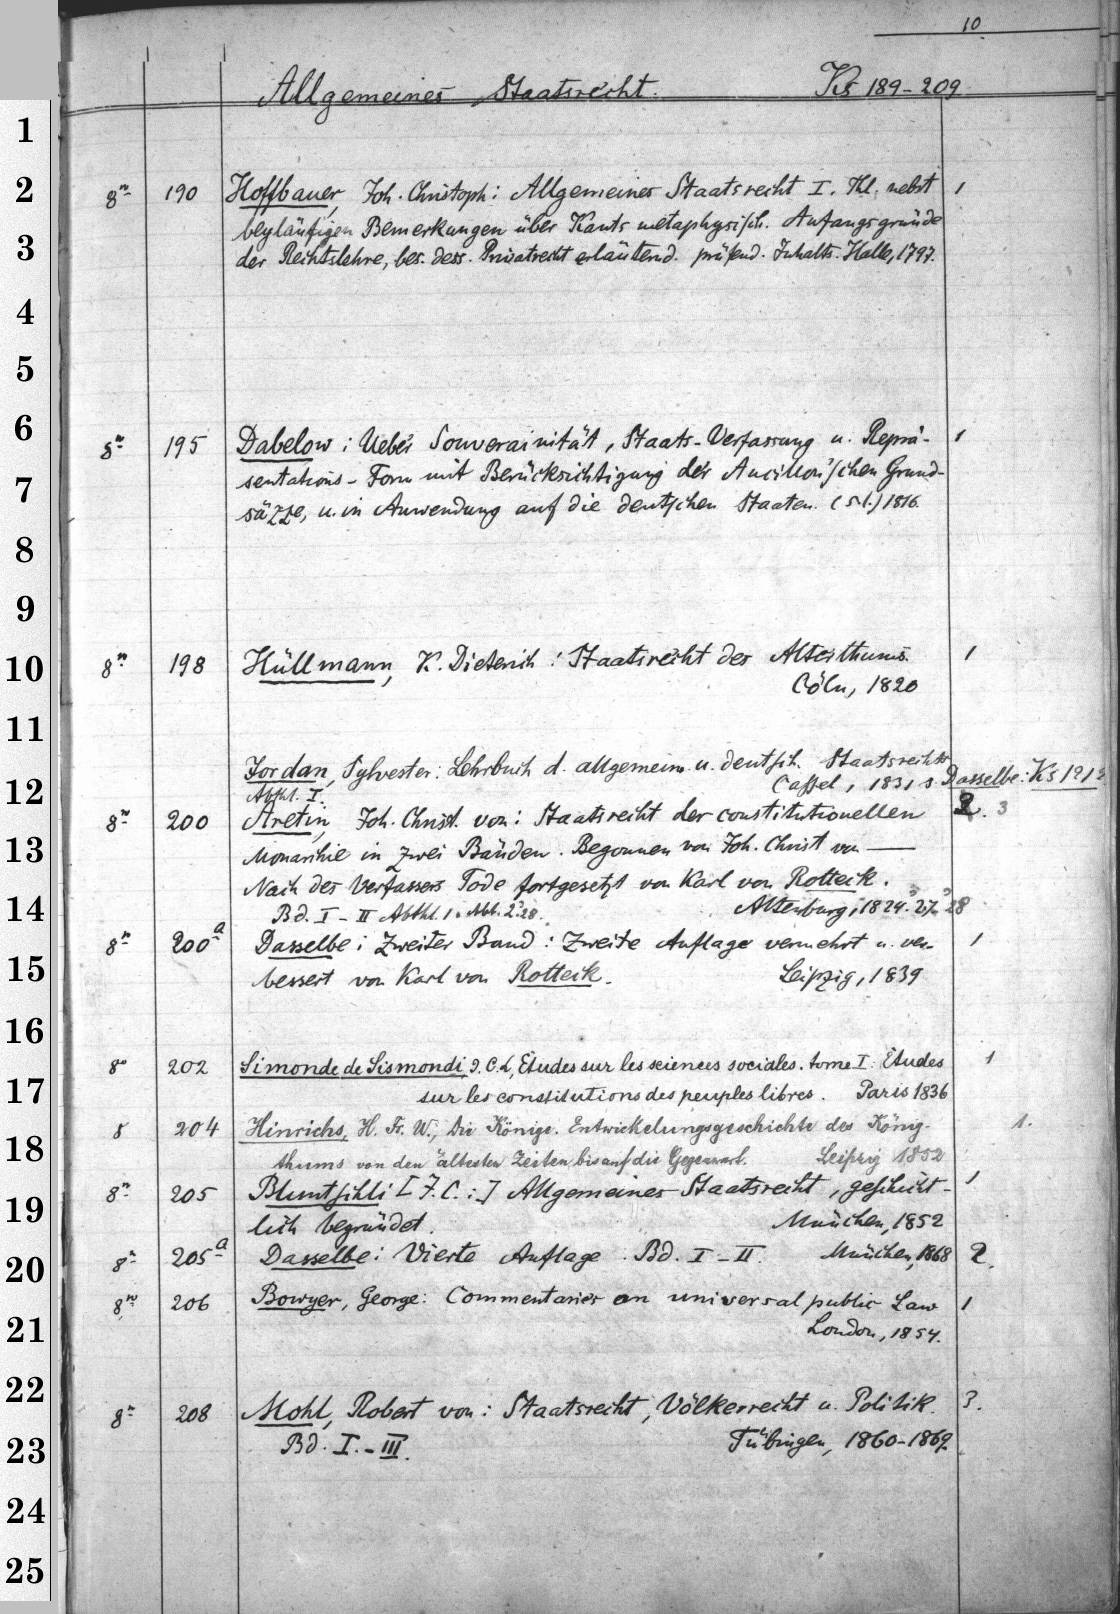 10
Allgemeines Staatsrecht. Ks 189-209
1
2 8º 190 Hoffbauer, Joh. Christoph: Allgemeines Staatsrecht I. Thl. nebst 1
beyläufigen Bemerkungen über Kants metaphysisch. Anfangsgründe
3 der Rechtslehre, bes. dess. Privatrecht erläutend. prüfend. Inhalts. Halle, 1797.
4
5
6 8º 195 Dabelow: Ueber Souverainität, Staats-Verfassung u. Reprä- 1
7 sentations-Form mit Berücksichtigung der Ancillon'schen Grund-
säzze, u. in Anwendung auf die deutschen Staaten. (s.l.) 1816.
8
9
10 8º 198 Hüllmann, K. Dieterich: Staatsrecht des Alterthums. 1
Cöln, 1820
11
Jordan, Sylvester: Lehrbuch d. allgemein. u. deutsch. Staatsrechts
12 Abthl. I. Cassel, 1831 s. Dasselbe: Ks 191
8º 200 Aretin, Joh. Christ. von: Staatsrecht der constitutionellen 2. 3
13 Monarchie in zwei Bänden. Begonnen von Joh. Christ von —
Nach des Verfassers Tode fortgesetzt von Karl von Rotteck.
14 Bd. I-II Abthl. 1. Abt. 2. 28. Altenburg, 1824. 27. 28
8º 200a Dasselbe: Zweiter Band: Zweite Auflage vermehrt u. ver- 1
15 bessert von Karl von Rotteck. Leipzig, 1839
16
8º 202 Simonde de Sismondi J.C.L, Études sur les sciences sociales. tome I: Études 1
17 sur les constitutions des peuples libres. Paris 1836
8 204 Hinrichs, H. Fr. W., Die Könige. Entwickelungsgeschichte des König- 1.
18 thums von den ältesten Zeiten bis auf die Gegenwart. Leipzig 1852
8º 205 Bluntschli [J. C.:] Allgemeines Staatsrecht, geschicht- 1
19 lich begründet. München, 1852
20 8º 205a Dasselbe: Vierte Auflage. Bd. I-II. München, 1868 2.
8º 206 Bowyer, George: Commentaries on universal public Law 1
21 London, 1854.
22
8º 208 Mohl, Robert von: Staatsrecht, Völkerrecht u. Politik. 3.
23 Bd. I.-III. Tübingen, 1860-1869.
24
25